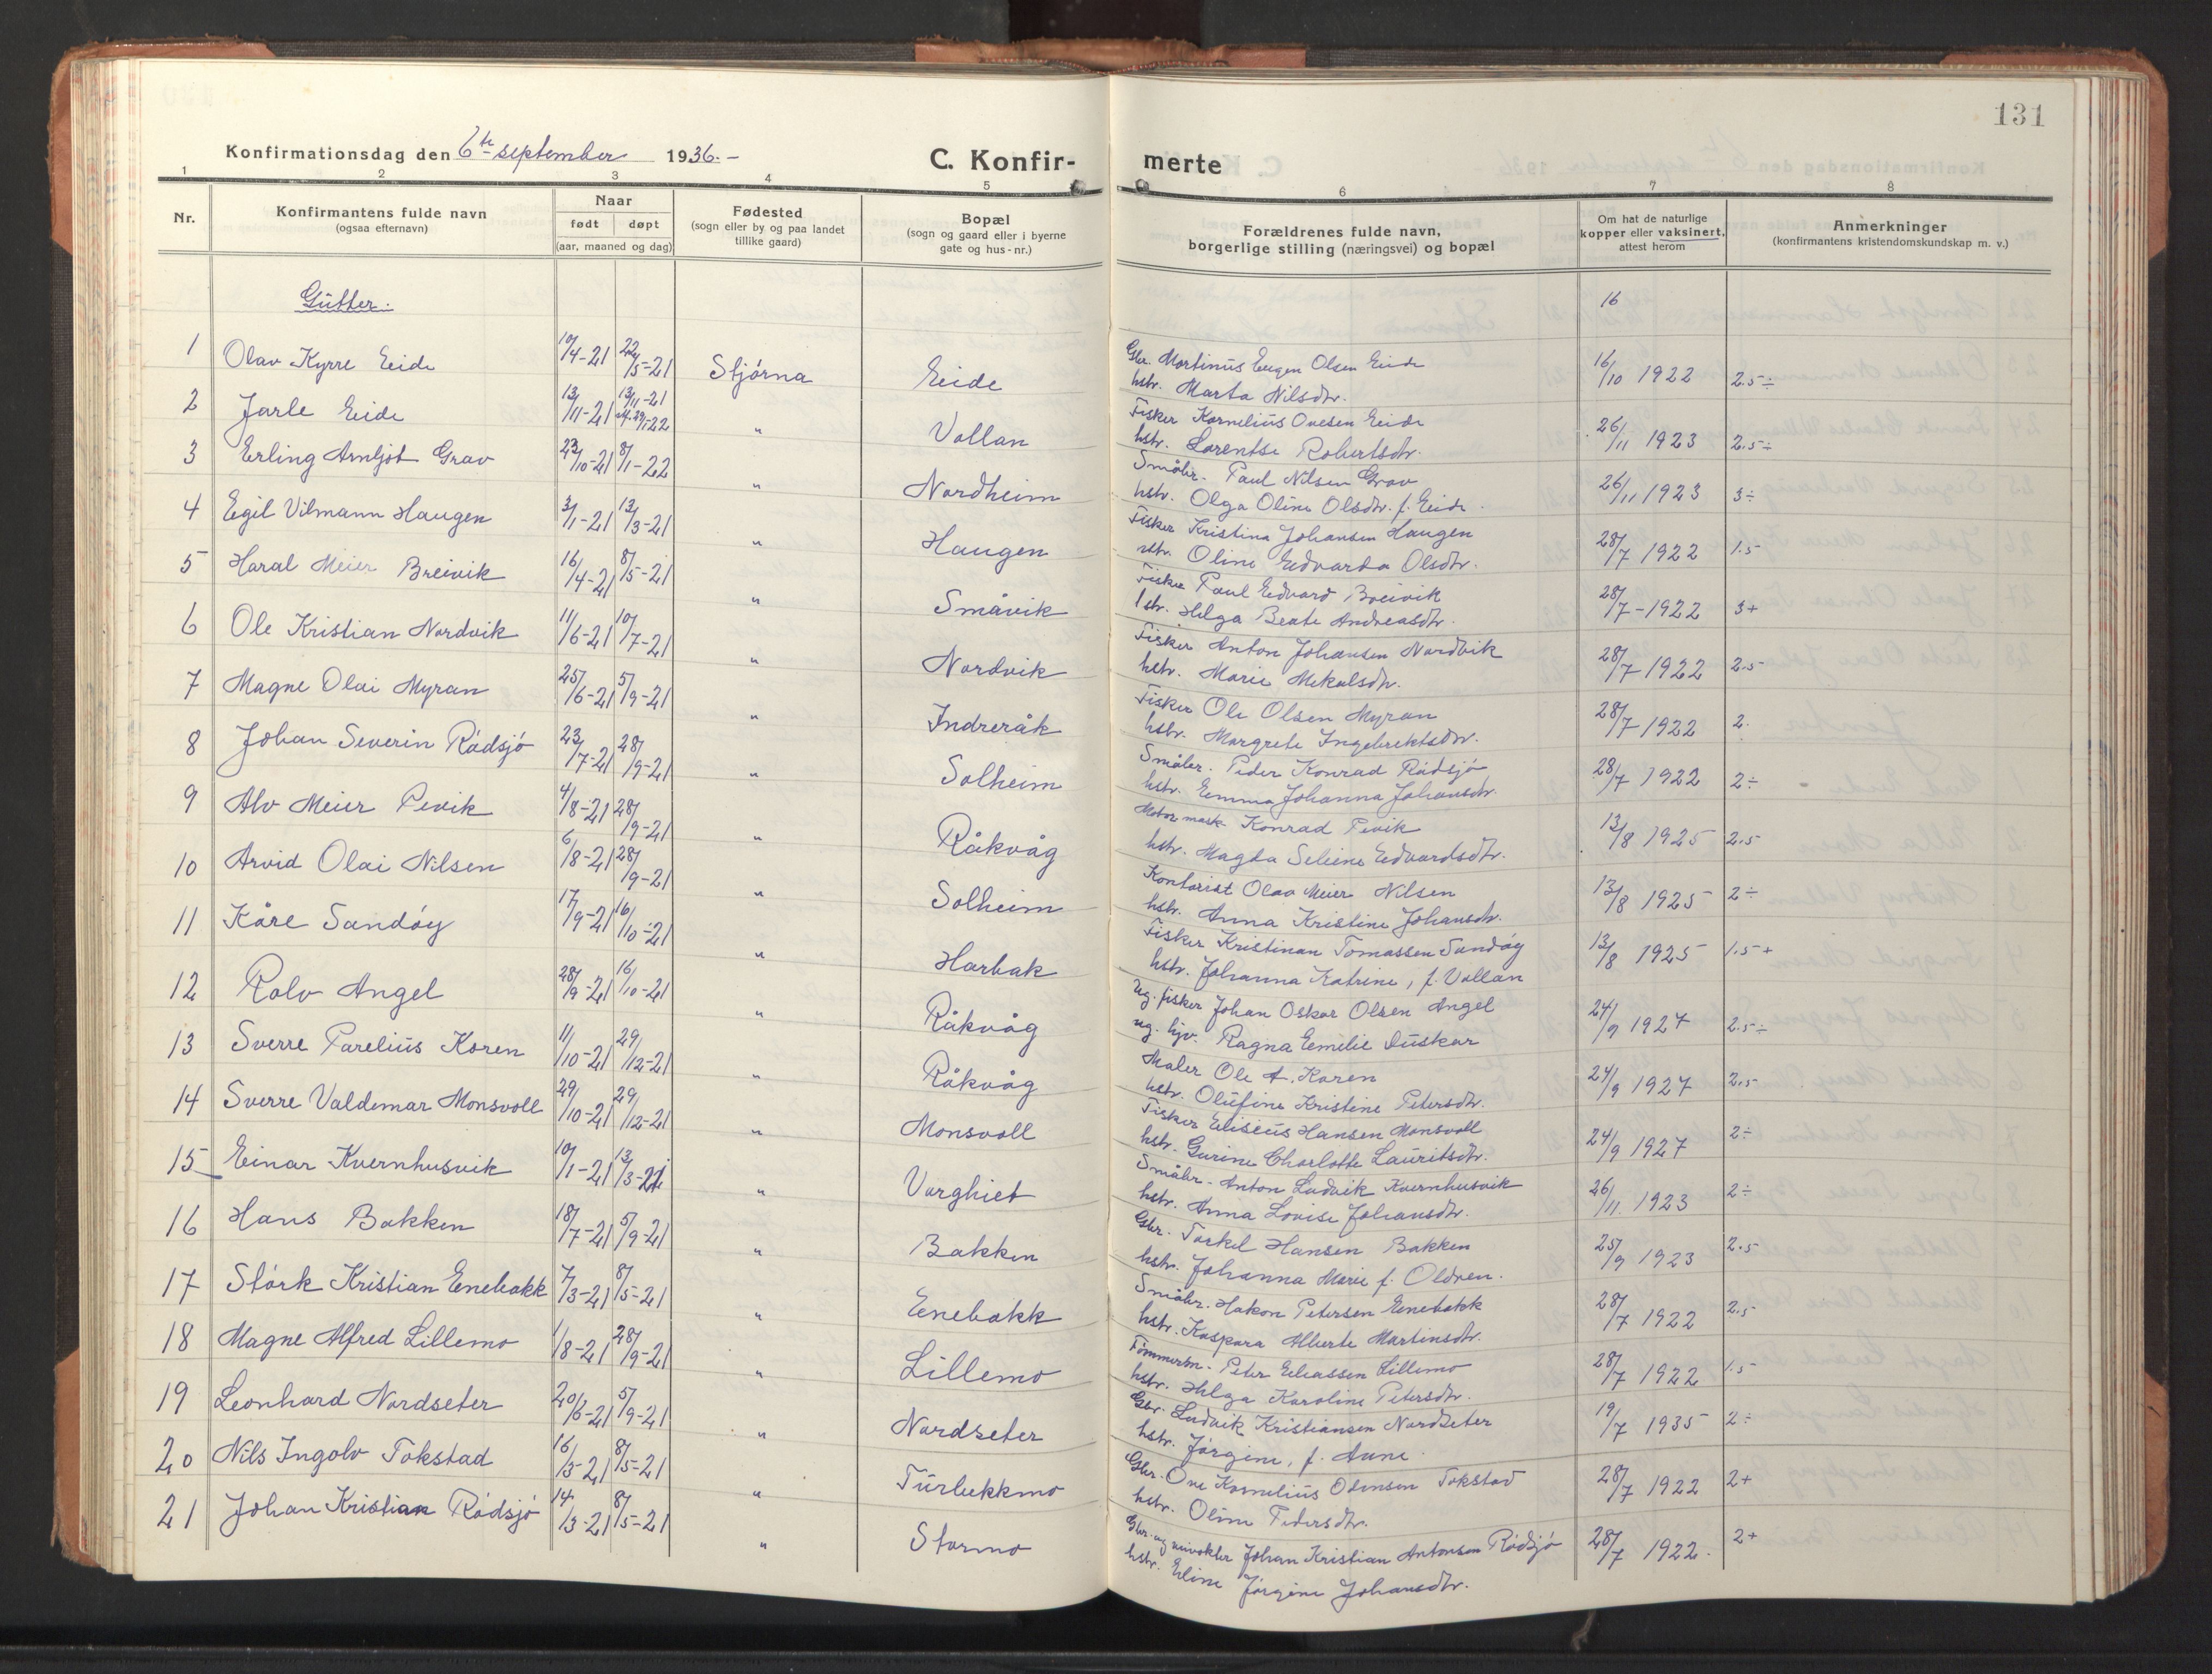 131
Konfirmationsdag den 6te september 1936.-
C. Konfirmerte
1 2 3 4 5 6 7 8
Nr.
Konfirmantens fulde navn
(ogsaa efternavn)
Naar
født døpt
(aar, maaned og dag)
Fødested
(sogn eller by og paa landet
tillike gaard)
Bopæl
(sogn og gaard eller i byerne
gate og hus-nr.)
Forældrenes fulde navn,
borgerlige stilling (næringsvei) og bopæl
Om hat de naturlige
kopper eller vaksinert,
attest herom
Anmerkninger
(konfirmantens kristendomskundskap m. v.)
Gutter.
16
1 Olav Kyrre Eide 10/4-21 22/5-21 Stjørna Eide Gbr. Martinus Eugen Olsen Eide 16/10 1922 2.5÷
hstr. Marta Nilsdtr.
2 Jarle Eide 13/11-21 13/11-21 " Vollan Fisker Kornelius Ovesen Eide 26/11 1923 2.5÷
hstr. Lorentse Robertsdtr.
3 Erling Arnljot Grav 23/10-21 8/1-22 " Nordheim Småbr. Paul Nilsen Grav 26/11 1923 3÷
hstr. Olga Oline Olsdtr. f. Eide.
4 Egil Vilmann Haugen 3/1-21 13/3-21 " Haugen Fisker Kristina Johansen Haugen 28/7 1922 1.5
hstr. Oline Edvarda Olsdtr.
5 Haral Meier Breivik 16/4-21 8/5-21 " Småvik Fisker Paul Edvard Breivik 28/7-1922 3+
hstr. Helga Beate Andreasdtr.
6 Ole Kristian Nordvik 11/6-21 10/7-21 " Nordvik Fisker Anton Johansen Nordvik 28/7 1922 2.5
hstr. Marie Mekalsdtr.
7 Magne Olai Myran 25/6-21 5/9-21 " Indreråk Fisker Ole Olsen Myran 28/7 1922 2.
hstr. Margrete Ingebrektsdtr.
8 Johan Severin Rødsjø 23/7-21 28/9-21 " Solheim Småbr. Peder Konrad Rødsjø 28/7 1922 2÷
hstr. Emma Johanna Johansdtr.
9 Alv Meier Pevik 4/8-21 28/9-21 " Råkvåg Motormask. Konrad Pevik 13/8 1925 2.5
hstr. Magda Seline Edvardsdtr.
10 Arvid Olai Nilsen 6/8-21 28/9-21 " Solheim Kontorist Olav Meier Nilsen 13/8 1925 2÷
hstr. Anna Kristine Johansdtr.
11 Kåre Sandøy 17/9-21 16/10-21 " Harbak Fisker Kristinan Tomassen Sandøy 13/8 1925 1.5+
hstr. Johanna Katrine, f. Vollan
12 Rolv Angel 28/9-21 16/10-21 " Råkvåg Ug. fisker Johan Oskar Olsen Angel 24/9 1927 2.5÷
ug. hjv. Ragna Emilie Duskar
13 Sverre Parelius Koren 11/10-21 29/12-21 " Råkvåg Maler Ole A. Koren 24/9 1927 2.5
hstr. Olufine Kristine Petersdtr.
14 Sverre Valdemar Monsvoll 29/10-21 29/12-21 " Monsvoll Fisker Eliseus Hansen Monsvoll 24/9 1927 2÷
hstr. Gurine Charlotte Lauritsdtr.
15 Einar Kvernhusvik 10/1-21 13/3-21 " Varghiet Småbr. Anton Ludvik Kvernhusvik 26/11 1923 2÷
hstr. Anna Lovise Johansdtr.
16 Hans Bakken 18/7-21 5/9-21 " Bakken Gbr. Torkel Hansen Bakken 25/9 1923 2.5
hstr. Johanna Marie f. Oldren.
17 Størk Kristian Enebakk 7/3-21 8/5-21 " Enebakk Småbr. Hakon Petersen Enebakk 28/7 1922 2.5
hstr. Kaspara Alberte Martinsdtr.
18 Magne Alfred Lillemo 1/8-21 28/9-21 " Lillemo Tømmerm. Peter Eliassen Lillemo 28/7 1922 1.5
hstr. Helga Karoline Petersdtr.
19 Leonhard Nordseter 20/6-21 5/9-21 " Nordseter Gbr. Ludvik Kristiansen Nordseter 19/7 1935 2÷
hstr. Jørgine, f. Aune.
20 Nils Ingolv Tokstad 16/3-21 8/5-21 " Turbekkmo Gbr. Ove Kornelius Odinsen Tokstad 28/7 1922 2+
hstr. Oline Pedersdtr.
21 Johan Kristian Rødsjø 14/3-21 8/5-21 " Stormo Gbr. og Johan Kristian Antonsen Rødsjø 28/7 1922. 2+
hstr. Eline Jørgine Johansdtr.